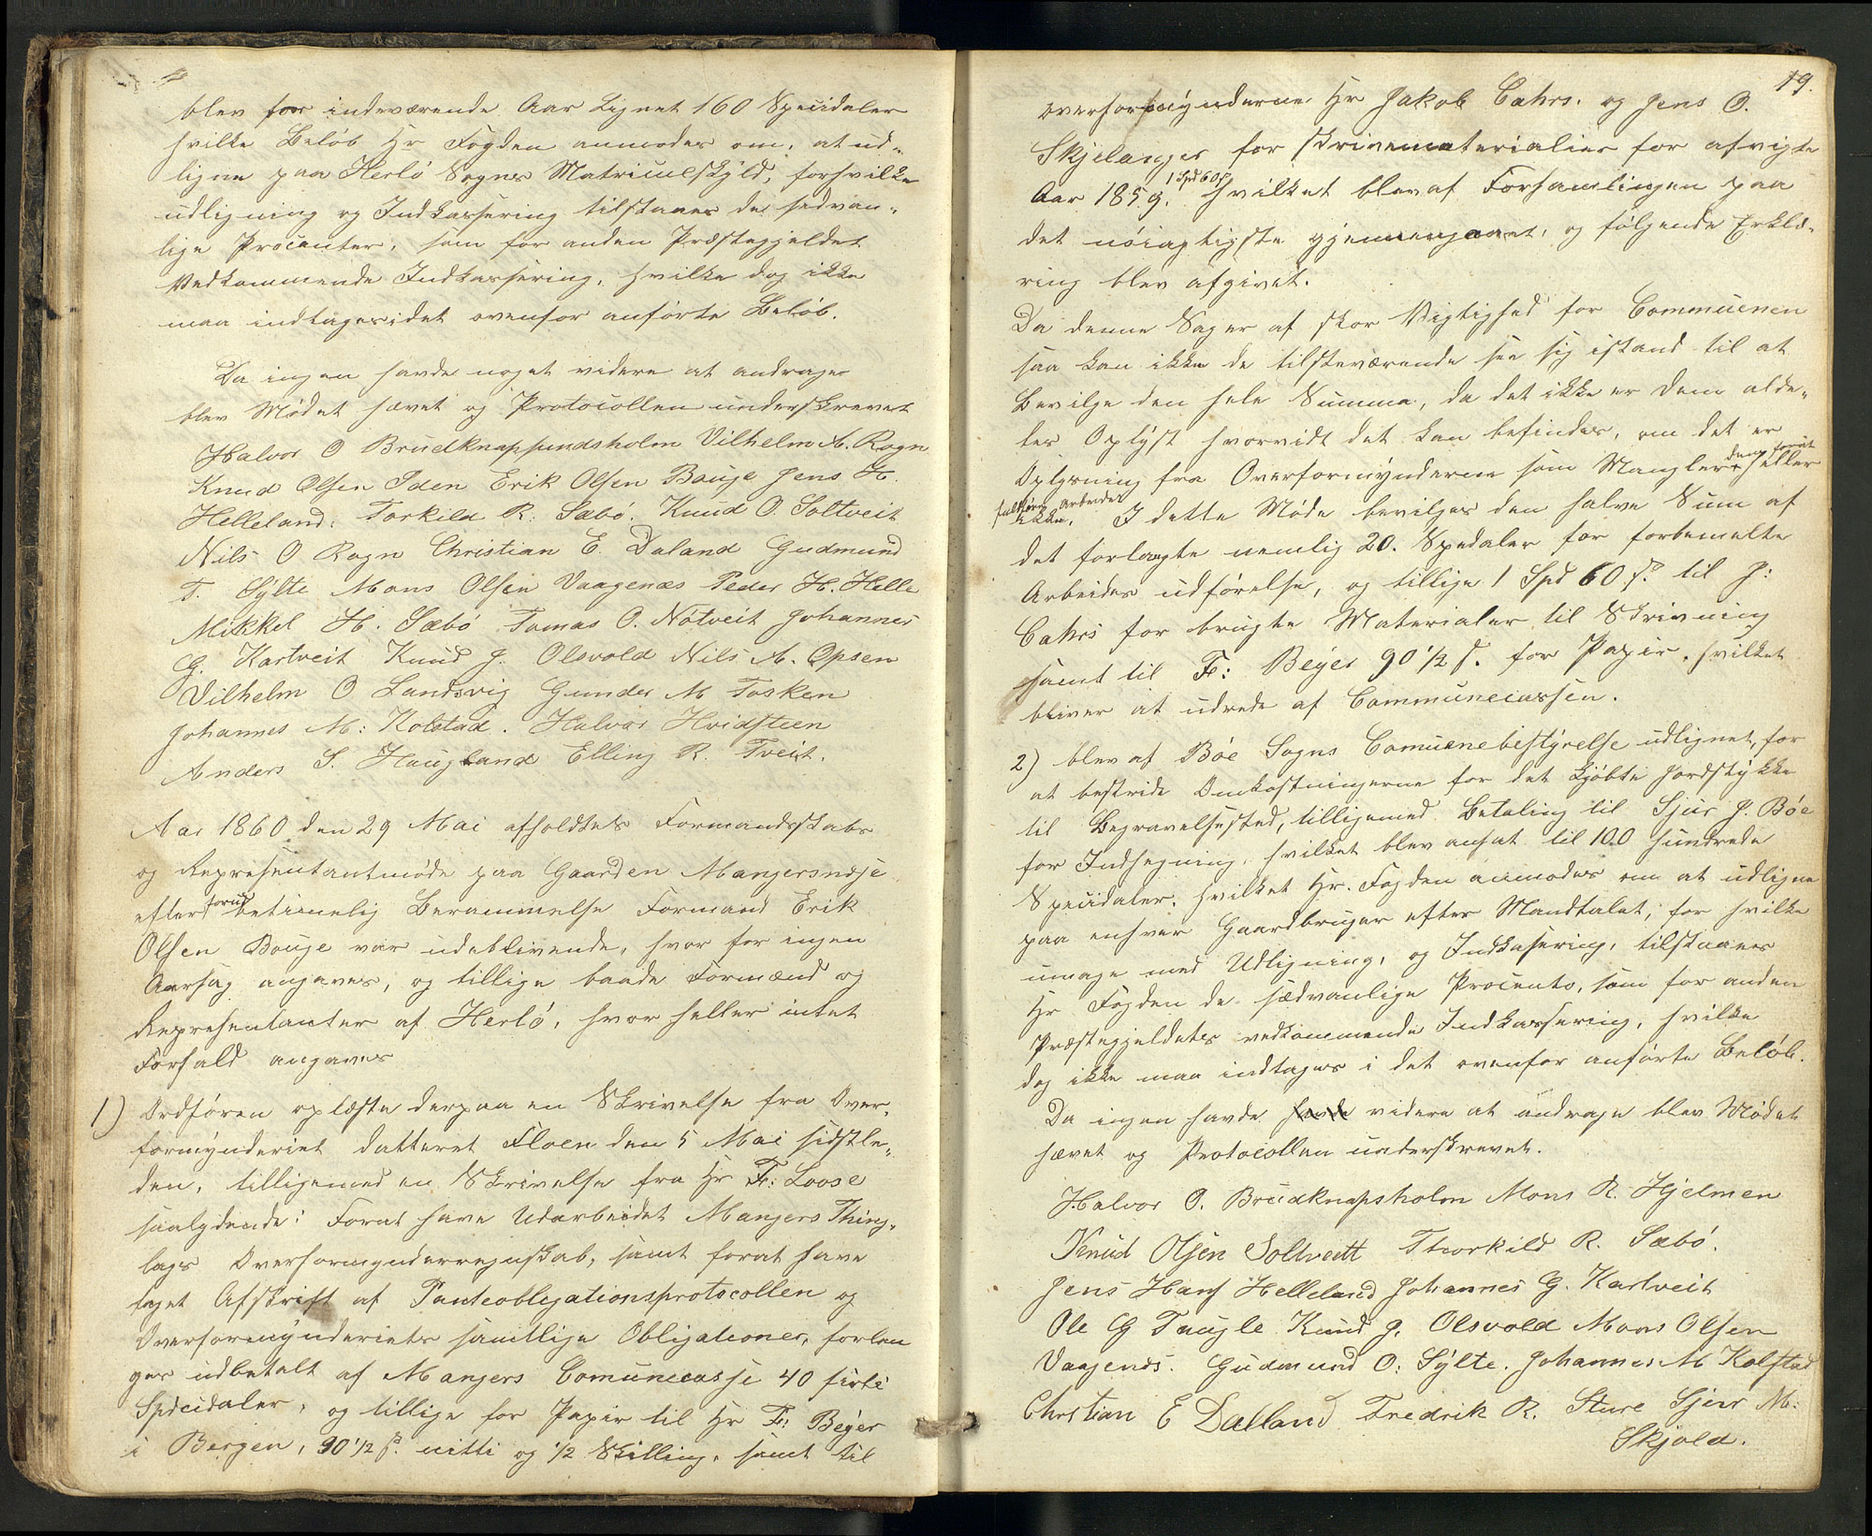 blev for indeværende Aar Lignet 160 Speciedaler
hvilke Beløb Hr Fogden anmodes om, at ud„
ligne paa Herlö Sogns Matriculskÿld, forhvilke
udligning og Indkassering tilstaaes de sedvan„
lige Procenter, som for anden Præstegjeldet
Vedkommende Indkassering, hvilke dog ikke
maa indtages i det ovenfor anförte Beløb.
Da ingen havde noget videre at andrage
blev Mödet hævet og Protocollen underskrevet
Halvor O Brudknapsundsholm Vilhelm A. Rogn
Knud Olsen Iden Erik Olsen Bouge Jens H.
Helleland. Torkild R. Sæbö. Knud O. Soltveit
Nils O Rogn Christian E. Daland Gudmund
T. Sÿlte Mons Olsen Vaagenæs Peder H. Helle
Mikkel H. Sæbö Tomas O. Nötveit Johannes
G. Kartveit Knud J. Olsvold Nils A. Opsen
Vilhelm O Landsvig Gunder M Tosken
Johannes M: Kolstad. Halvor Hvidsteen
Anders S. Haugland Elling R. Tveit.
Aar 1860 den 29 Mai afholdtes Formandsskabs
og Representantmöde paa Gaarden Mangersnæse
efter forud betimelig Berammelse Formand Erik
Olsen Bouge var udeblivende, hvor for ingen
Aarsag angaves, og tillige baade Formænd og
Representanter af Herlö, hvor heller intet
Forfald angaves
1) Ordfören oplæste derpaa en Skrivelse fra Over„
formÿnderiet datteret Floen den 5 Mai sidstle„
den, tilligemed en Skrivelse fra Hr Fr: Loose
saalydende: Forat have Udarbeidet Mangers Thing„
lags Overformynderregnskab, samt forat have
taget Afskrift af Panteobligationsprotocollen og
Overformÿnderiets samtlige Obligationer, forlan
ges udbetalt af Mangers Comunecasse 40 firti
Speciedaler, og tillige for Papir til Hr Fr: Beÿer
i Bergen, 90 1/2 s. nitti og 1/2 Skilling, samt til
19.
overformÿnderne Hr Jakob Cahrs. og Jens O.
Skjelanger for Skrivematerialier for afvigte
Aar 1859. 1 Spd 60 s hvilket blev af Forsamlingen paa
det nöiagtigste gjennemgaaet, og fölgende Erklæ„
ring blev afgivet.
Da denne Sag er af stor Vigtighed for Communen
saa kan ikke de tilstedværende see sig istand til at
Bevilge den hele Summa, da det ikke er dem alde„
les Oplÿst hvorvidt det kan befindes, om det er
Oplysning fra Overformÿnderne som Mangler eller
ikke. I dette Möde bevilges den halve Sum af
det forlangte nemlig 20. Spedaler for forbemelte
Arbeides udförelse, og tillige 1 Spd 60 s. til J:
Cahrs for brugte Materialer til Skrivning
samt til Fr: Beÿer 90 1/2 s. for Papir, hvilket
bliver at udrede af Communecassen.
2) blev af Böe Sogns Comunebestÿrelse udlignet, for
at bestride Omkostningerne for det Kjöbte Jordstÿkke
til Begravelsested, tilligemed Betaling til Sjur J. Böe
for Indhegning, hvilket blev ansat til 100 hundrede
Speciedaler, hvilket Hr. Fogden anmodes om at udligne
paa enhver Gaardbruger efter Mandtalet, for hvilke
umage med Udligning, og Indkasering, tilstaaes
Hr Fogden de sædvanlige Procento, som for anden
Præstegjeldets vedkommende Indkassering, hvilke
dog ikke maa indtages i det ovenfor anförte Beløb.
Da ingen havde havde videre at andrage blev Mödet
hævet og Protocollen underskrevet.
Halvor O. Brudknapsholm Mons R. Hjelmen
Knud Olsen Soltvedt Thorkild R. Sæbö.
Jens Hans Helleland Johannes G. Kartveit
Ole G Taugle Knud J. Olsvold Mons Olsen
Vaagenæs. Gudmund O: Sÿlte. Johannes M Kolstad
Christian E Dalland Fredrik R. Sture Sjur M:
Skjold.